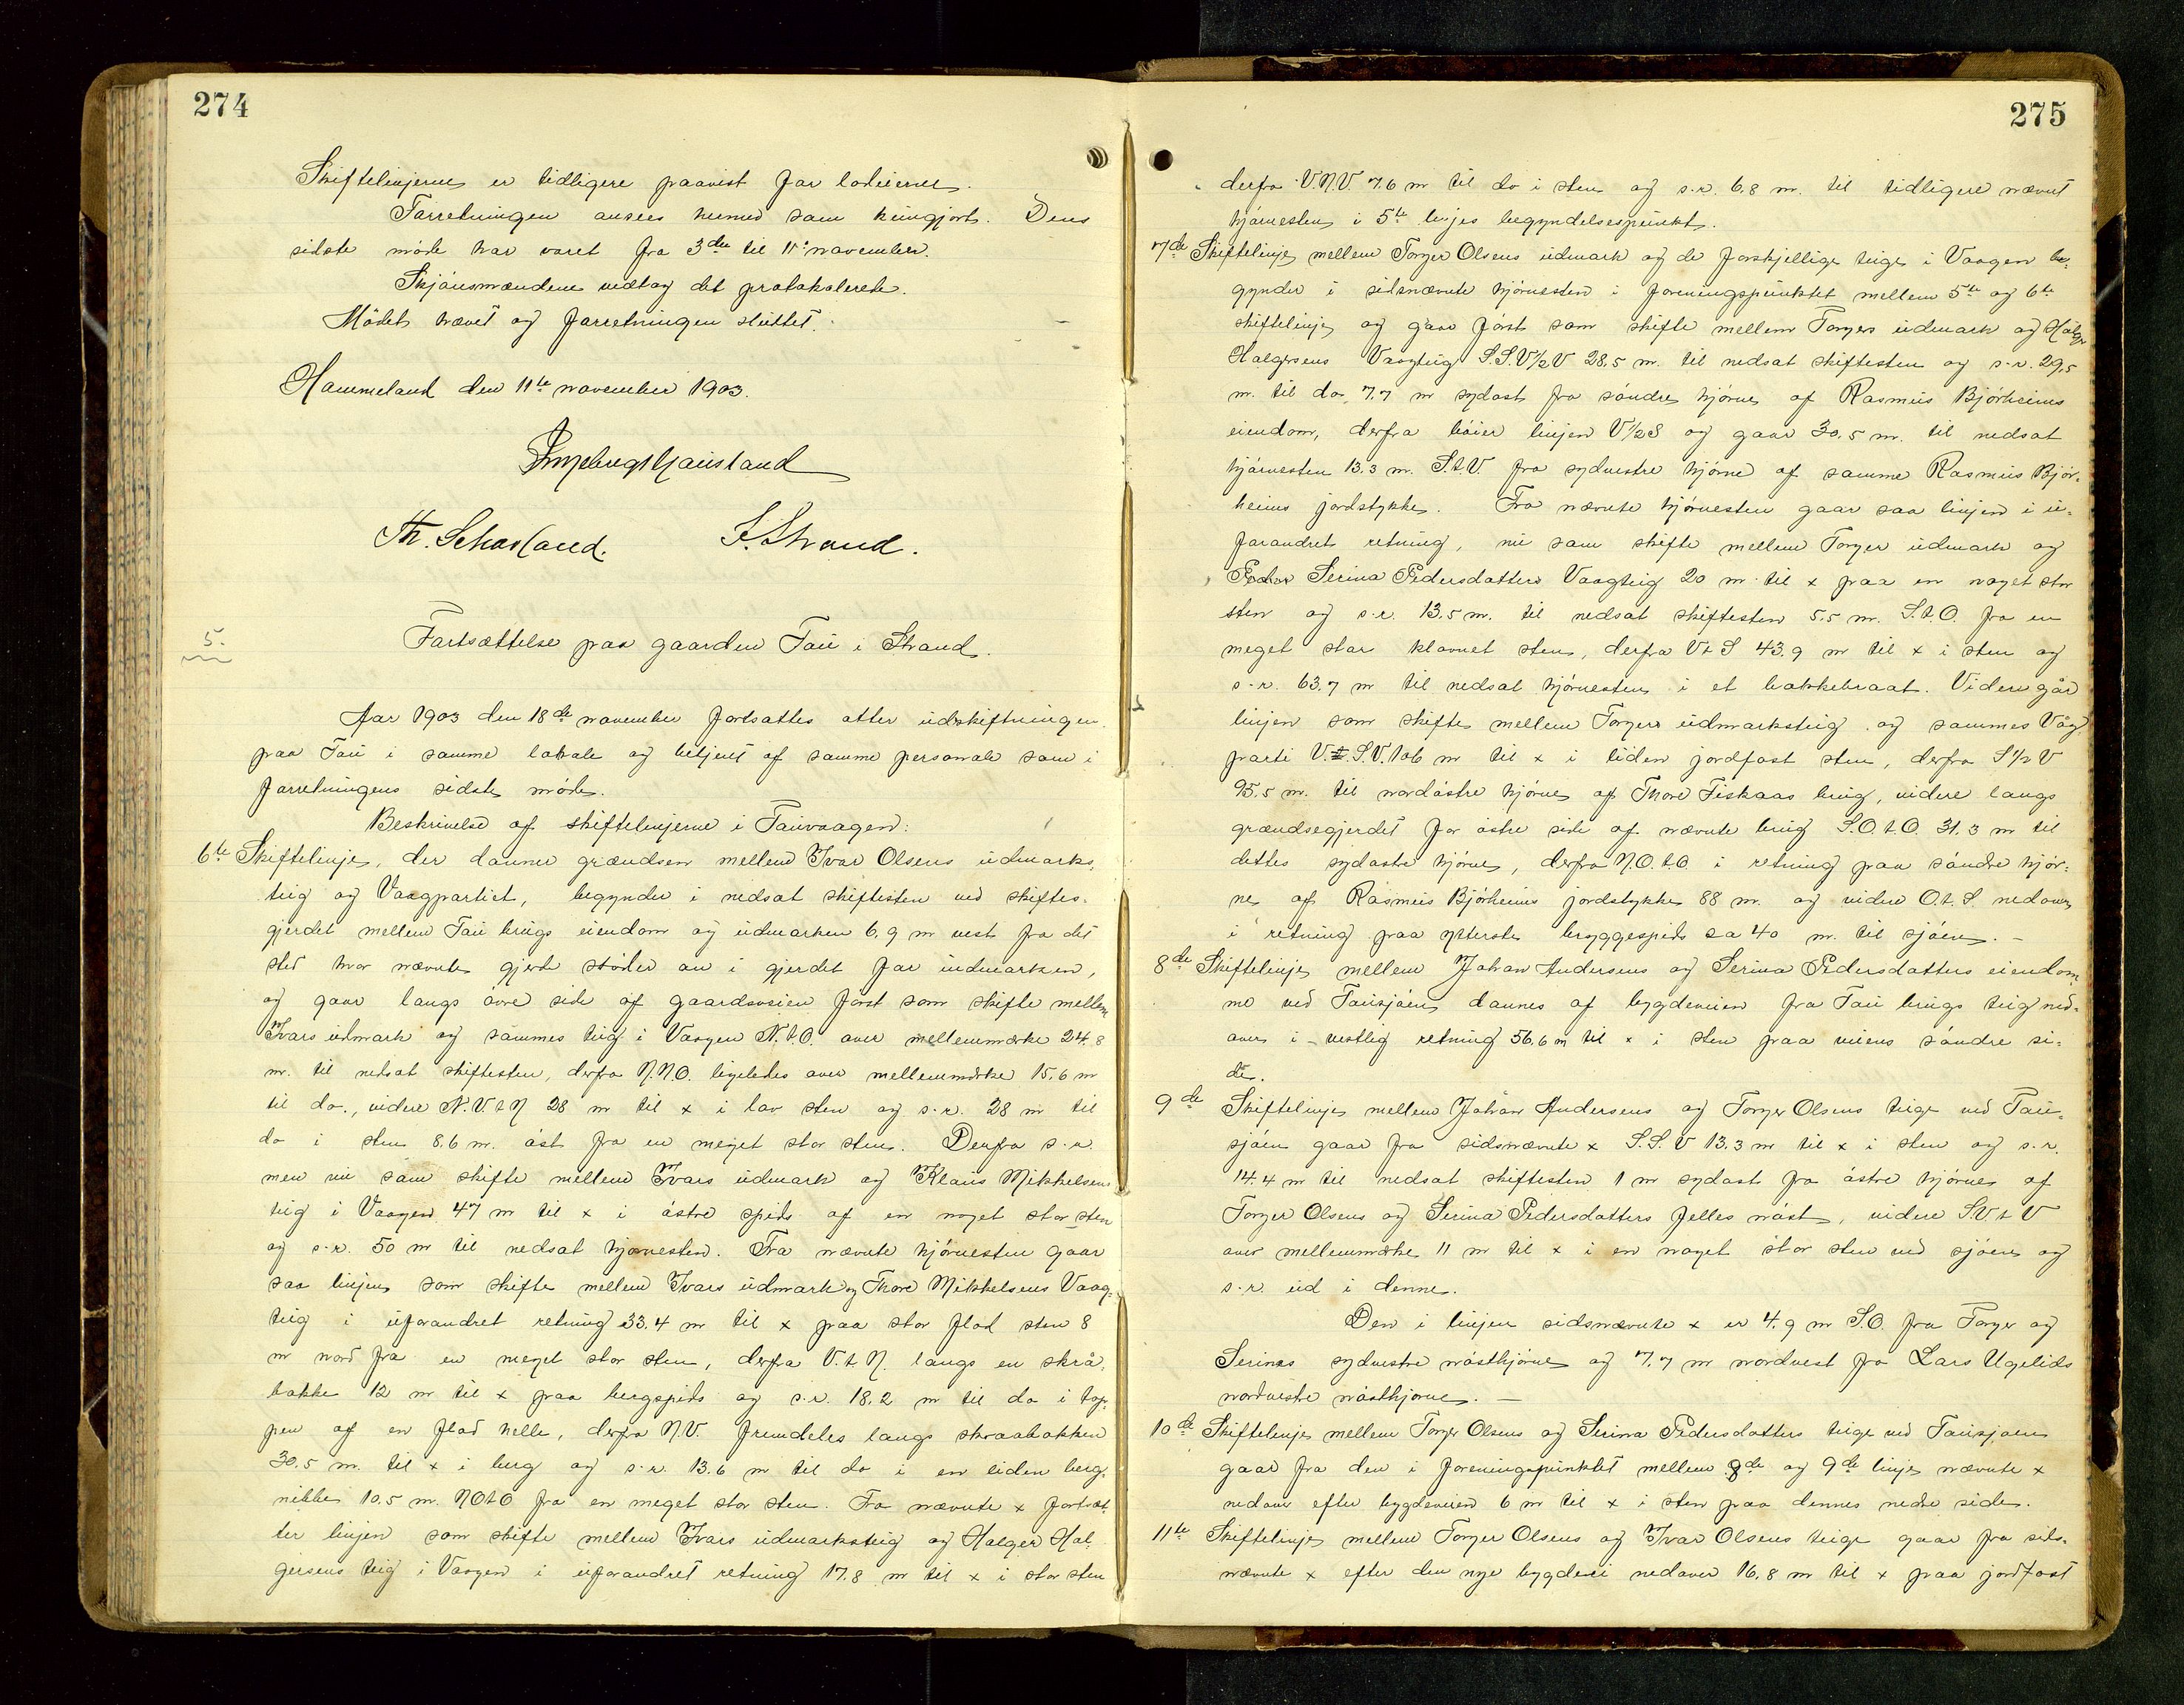 274
Skiftelinjerne er tidligere paavist for lodeierne.
Forretningen ansees hermed som kungjort. Dens
sidste möde har varet fra 3die til 11te november.
Skjönsmændene vedtog det protokolerede.
Mödet hævet og forretningen sluttet.
Hammeland den 11te november 1903.
Ingebregt Hausland
Th. Schou land. S. Strand.
5.
Fortsættelse paa gaarden Tau i Strand.
Aar 1903 den 18de november fortsattes atter udskiftningen
paa Tau i samme lokale og betjent af samme personale som i
forretningens sidste möde.
Beskrivelse af skiftelinjerne i Tauvaagen:
6te Skiftelinje, der danner grændsen mellem Ivar Olsens udmarks-
teig og Vaagpartiet, begynder i nedsat skiftesten ved skiftes-
gjerdet mellem Tau brugs eiendom og udmarken 6.9 m vest fra det
sted hvor nævnte gjerde støder an i gjerdet for indmarken,
og gaar langs övre side af gaardsveien först som skifte mellem
Ivars udmark og sammes teig i Vaagen N.t.O. over mellemmærke 24.8
m. til nedsat skiftesten, derfra N.N.O. ligeledes over mellemmærke 15.6 m
til do., videre N.V.t.N 28 m til x i lav sten og s.r. 28 m til
do i sten 8.6 m. öst fra en meget stor sten. Derfra s.r.
men nu som skifte mellem Ivars udmark og Klaus Mikkelsens
teig i Vaagen 47 m til x i östre spids af en noget stor sten
og s.r. 50 m til nedsat hjørnesten. Fra nævnte hjörnesten gaar
saa linjen som skifte mellem Ivars udmark og Thore Mikkelsens Vaag-
teig i uforandret retning 33.4 m til x paa stor flad sten 8
m nord fra en meget stor sten, derfra V.t.N. langs en skrå-
bakke 12 m til x paa bergspids og s.r. 18.2 m til do i top-
pen af en flad helle, derfra N.V. fremdeles langs skraabakken
30.5 m. til x i berg og s.r. 13.6 m til do i en liden berg-
nibbe 10.5 m. NOtO fra en meget stor sten. Fra nævnte x fortsæt-
ter linjen som skifte mellem Ivars udmarksteig og Halger Hal-
geirsens teig i Vaagen i uforandret retning 17.8 m til x i stor sten
275
derfra V.N.V. 7.6 m til do i sten og s.r. 6.8 m. til tidligere nævnt
hjörnesten i 5te linjes begyndelsespunkt.
7de Skiftelinje mellem Torger Olsens udmark og de forskjellige teige i Vaagen be-
gynder i sidsnævnte hjörnesten i foreningspunktet mellem 5te og 6te
skiftelinje og gaar först som skifte mellem Torgers udmark og Holger
Halgersens Vaagteig S.S.V½V 28.5 m. til nedsat skiftesten og s.r. 29,5
m. til do, 7.7 m sydost fra söndre hjörne af Rasmus Björheims
eiendom, derfra böier linjen V½S og gaar 30.5 m. til nedsat
hjörnesten 13.3 m. S.t.V. fra sydvestre hjörne af samme Rasmus Björ-
heims jordstykke. Fra nævnte hjörnesten gaar saa linjen i u-
forandret retning, nu som skifte mellem Torger udmark og
Serina Pedersdatters Vaagteig 20 m til x paa en noget stor
sten og s.r. 13.5 m. til nedsat skiftesten 5.5 m. S.t.O. fra en
meget stor klovnet sten, derfra VtS 43.9 m til x i sten og
s.r. 63.7 m til nedsat hjörnesten i et bakkebraat. Videre går
linjen som skifte mellem Torgers udmarksteig og sammes Våg
parti V.S.V. 106 m til x i liden jordfast sten, derfra S½V
95.5 m. til nordöstre hjörne af Thore Fiskaas brug, videre langs
grændsegjerdet for östre side af nævnte brug S.O.t.O. 31.3 m til
dettes sydöstre hjörne, derfra N.O.t.O i retning paa söndre hjör-
ne af Rasmus Björheims jordstykke 88 m. og videre O.t.S. nedover
i retning paa ytterste bryggespids ca 40 m. til sjöen. –
8de Skiftelinje mellem Johan Andersens og Serina Pedersdatters eiendom-
me ved Tausjöen dannes af bygdeveien fra Tau brugs teig ned-
over i vestlig retning 56.6 m til x i sten paa veiens söndre si-
de.
9de Skiftelinje mellem Johan Andersens og Torger Olsens teige ved Tau-
sjöen gaar fra sidsnævnte x S.S.V 13.3 m til x i sten og s.r.
14.4 m til nedsat skiftesten 1 m sydost fra östre hjörne af
Torger Olsens og Serina Pedersdatters fælles nöst, videre S.V.t.V
over mellemmærke 11 m til x i en noget stor sten ved sjöen og
s.r. ud i denne.
Den i linjen sidsnævnte x er 4.9 m S.O. fra Torger og
Serines sydvestre nösthjörne og 7.7 m nordvest fra Lars Ugelids
nordvestre nösthjörne. –
10de Skiftelinje mellem Torger Olsens og Serina Pedersdatters teige ved Tausjöen
gaar fra den i foreningspunktet mellem 8de og 9de linje nævnte x
nedover efter bygdeveien 6 m til x i sten paa dennes nedre side.
11te Skiftelinje mellem Torger Olsens og Ivar Olsens teige gaar fra sids-
nævnte x efter den nye bygdevei nedover 16.8 m til x paa jordfast